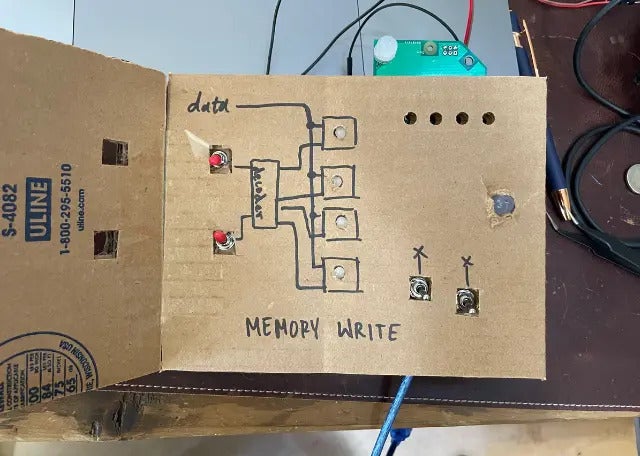 S-4082
ULINE
1-800-295-5510
uline.com
data
decoder
x x
MEMORY WRITE